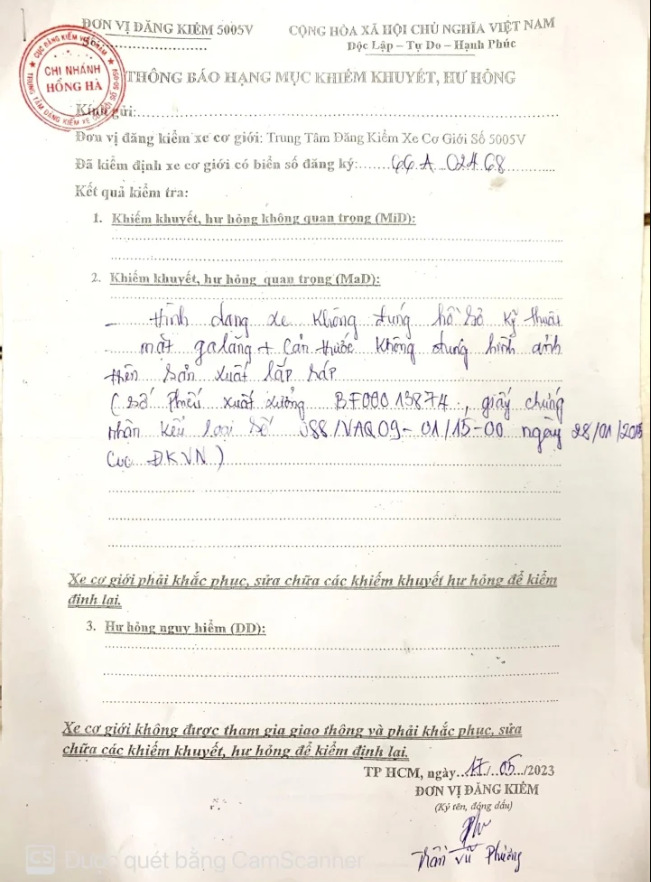 ĐƠN VỊ ĐĂNG KIỂM 5005V
CỘNG HÒA XÃ HỘI CHỦ NGHĨA VIỆT NAM
Số:
Độc Lập – Tự Do – Hạnh Phúc
CỤC ĐĂNG KIỂM VIỆT NAM
CHI NHÁNH
HỒNG HÀ
THÔNG BÁO HẠNG MỤC KHIẾM KHUYẾT, HƯ HỎNG
Kính gửi:
Đơn vị đăng kiểm xe cơ giới: Trung Tâm Đăng Kiểm Xe Cơ Giới Số 5005V
Đã kiểm định xe cơ giới có biển số đăng ký: 66A 024 68
Kết quả kiểm tra:
1. Khiếm khuyết, hư hỏng không quan trọng (MiD):
2. Khiếm khuyết, hư hỏng quan trọng (MaD):
– Hình dạng xe không đúng hồ sơ kỹ thuật
mặt galăng + Cản trước không đúng hình ảnh
trên sản xuất lắp ráp
(số phiếu xuất xưởng BF000 13874, giấy chứng
nhận kiểu loại số 088/VAQ09-01/15-00 ngày 28/01/2015
Cục ĐKVN)
Xe cơ giới phải khắc phục, sửa chữa các khiếm khuyết hư hỏng để kiểm
định lại.
3. Hư hỏng nguy hiểm (DD):
Xe cơ giới không được tham gia giao thông và phải khắc phục, sửa
chữa các khiếm khuyết, hư hỏng để kiểm định lại.
TP HCM, ngày 17/05/2023
ĐƠN VỊ ĐĂNG KIỂM
(Ký tên, đóng dấu)
Trần Vũ Phương
CS Được quét bằng CamScanner